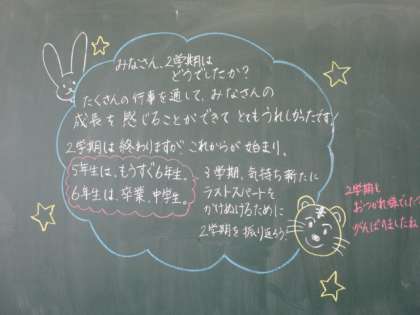 みなさん、2学期は
どうでしたか？
たくさんの行事を通して、みなさんの
成長を感じることができてとてもうれしかったです！
2学期は終わりますが、これからが始まり、
5年生は、もうすぐ6年生。
6年生は、卒業、中学生。
3学期、気持ち新たに
ラストスパートを
かけぬけるために
2学期を振り返ろう！
2学期も
おつかれ様でした
がんばりましたね